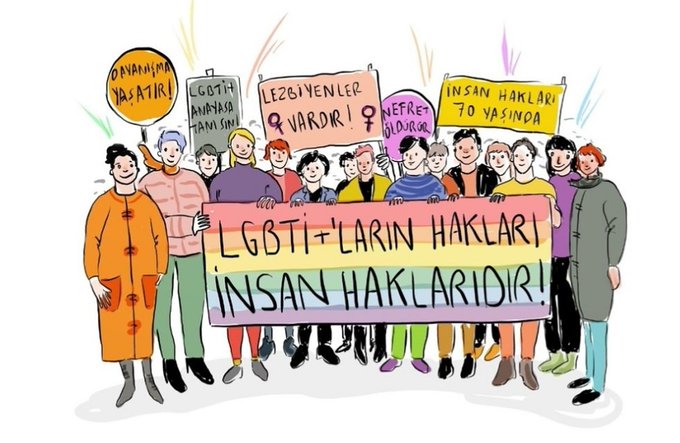 DAYANIŞMA
YAŞATIR!
LGBTİ+
ANAYASA
TANISIN!
LEZBİYENLER
VARDIR!
NEFRET
ÖLDÜRÜR
İNSAN HAKLARI
70 YAŞINDA
LGBTİ+'LARIN HAKLARI
İNSAN HAKLARIDIR!